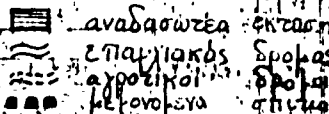 αναδασωτέα έκταση
επαρχιακός δρόμος
αγροτικοί δρόμοι
μεμονομενα σπιτια